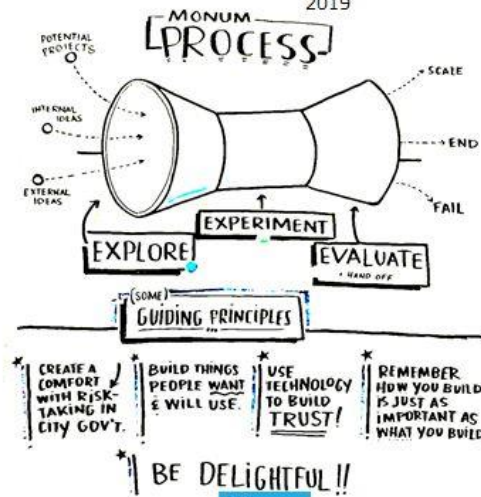 2019
MONUM
PROCESS
POTENTIAL
PROJECTS
INTERNAL
IDEAS
EXTERNAL
IDEAS
SCALE
END
FAIL
EXPLORE
EXPERIMENT
EVALUATE
• HAND OFF
(SOME)
GUIDING PRINCIPLES
CREATE A
COMFORT
WITH RISK-
TAKING IN
CITY GOV'T.
BUILD THINGS
PEOPLE WANT
& WILL USE.
USE
TECHNOLOGY
TO BUILD
TRUST!
REMEMBER
HOW YOU BUILD
IS JUST AS
IMPORTANT AS
WHAT YOU BUILD
BE DELIGHTFUL!!